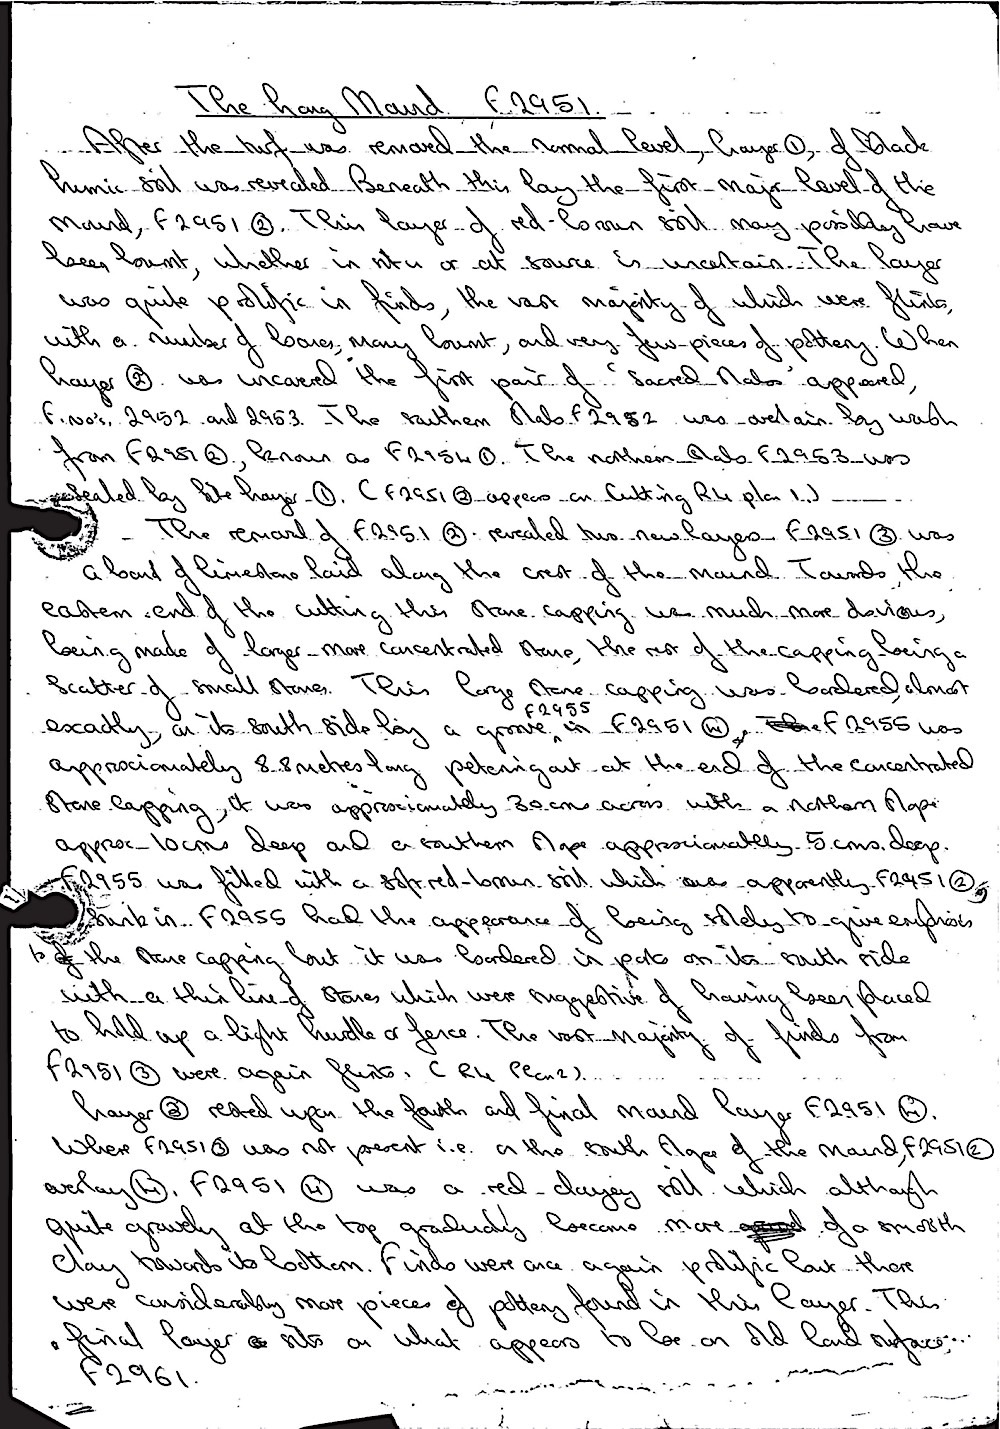 The Long Mound F2951.
After the turf was removed the normal level, Layer ①, of black
humic soil was revealed Beneath this lay the first major level of the
Mound, F2951 ②. This layer of red-brown soil may possibly have
been burnt, whether in situ or at source is uncertain. The layer
was quite prolific in finds, the vast majority of which were flints,
with a number of bones, many burnt, and very few pieces of pottery. When
Layer ② was uncovered the first pair of 'Sacred Slabs' appeared,
F.no's. 2952 and 2953. The southern Slab F2952 was overlain by wash
from F2951②, known as F2954①. The northern Slab F2953 was
sealed by Site Layer ①. (F2951② appears on Cutting R4 plan 1.)
The removal of F2951 ② revealed two new layers F2951 ③ was
a band of limestone laid along the crest of the mound. Towards the
eastern end of the cutting this stone capping was much more obvious,
being made of larger more concentrated stone, the rest of the capping being a
scatter of small stones. This large stone capping was bordered, almost
exactly, on its south side by a groove, F2955 in F2951 ④, F2955 was
approximately 8.8 metres long petering out at the end of the concentrated
Stone Capping, it was approximately 30 cms across with a northern slope
approx 10cms deep and a southern slope approximately 5 cms. deep.
F2955 was filled with a soft red-brown soil which was apparently F2951②,
sunk in. F2955 had the appearance of being solely to give emphasis
to the stone capping but it was bordered in parts on its south side
with a thin line of stones which were suggestive of having been placed
to hold up a light hurdle or fence. The vast majority of finds from
F2951 ③ were again flints. (R4 Plan 2).
Layer ③ rested upon the fourth and final mound layer F2951 ④.
Where F2951③ was not present i.e. on the south slope of the mound, F2951②
overlay ④. F2951 ④ was a red-clayey soil which although
quite gravely at the top gradually became more of a smooth
clay towards its bottom. Finds were once again prolific but there
were considerably more pieces of pottery found in this layer. This
final layer sits on what appears to be an old land surface,
F2961.